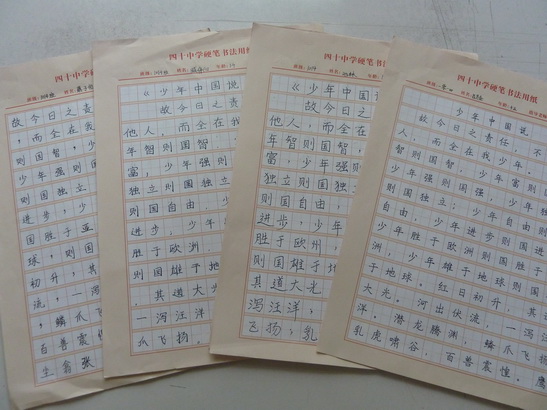 四十中学硬
故今日之责
，而全在
则国智，少
少年强则国
则国独立，
进步，少
国胜于
球，则国
初升，其
流，一泻
，鳞爪飞
百兽震惶
生翕张
四十中学硬笔书法用纸
《少年中国说
故今日之责
他人，而全在我
年智则国智
富，少年强则
独立则国独立
则国自由 少
进步，少年
胜于欧洲，
则国雄于地
，其道大光
一泻汪洋
爪飞扬。
四十中学硬笔书法用纸
《少年中国说
故今日之责
他人，而全在我
年智则国智
富，少年强则
独立则国独
则国自由，
进步，少年
胜于欧州，
则国雄于
其道大光
泻汪洋，
飞扬，乳
四十中学硬笔书法用纸
少年中国说
故今日之责任，不
人，而全在我少年。
智则国智，少年富则国
少年强则国强，少年
则国独立；少年自由则国
自由，少年进步则国进
少年胜于欧洲则国胜于
洲，少年雄于地球则国
于地球。红日初升，其道
大光。河出伏流，一泻汪
洋。潜龙腾渊，鳞爪飞扬
乳虎啸谷，百兽震惶。鹰